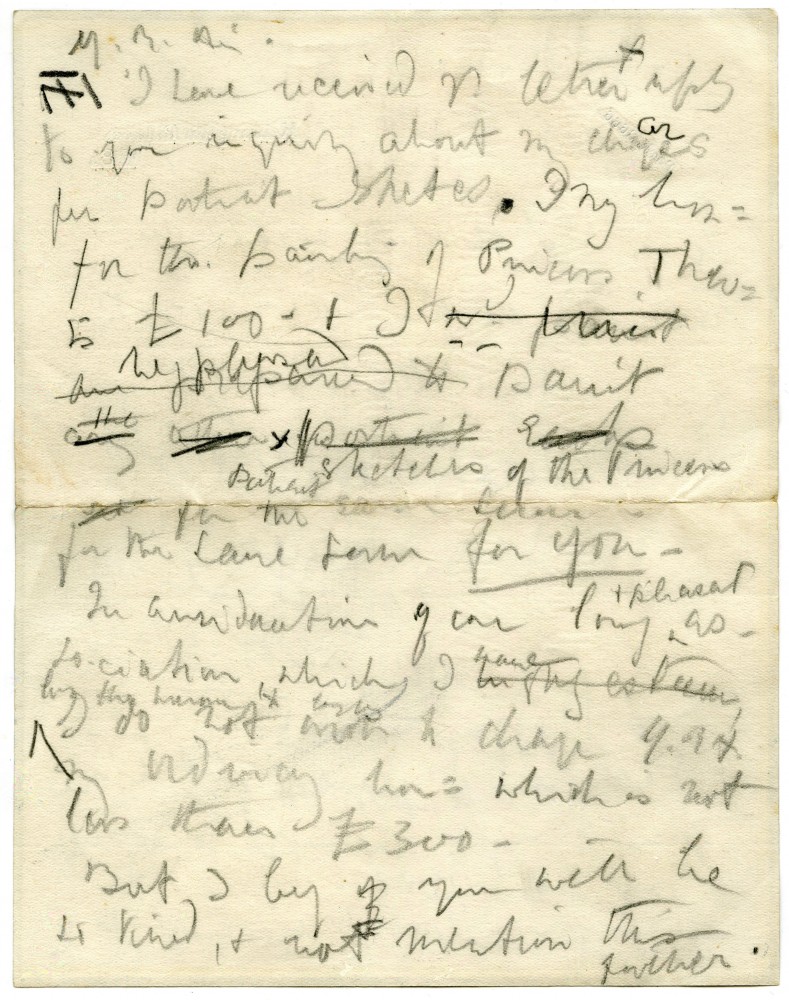 Y. R. Hi.
I have received yr letter +
to your inquiry about my charges
for portrait sketches. My hon=
for the painting of Princess
is £100 - & I paint
prepared to paint
any other portrait
Portrait Sketches of the Princess
for the same
for the same term for you -
In consideration of our long + pleasant as-
sociation, which I highly esteem,
I do not to charge Y.R.H.
my ordinary hon= which is not
less than £300 -
But I beg of you will be
so kind, & not mention this
further.